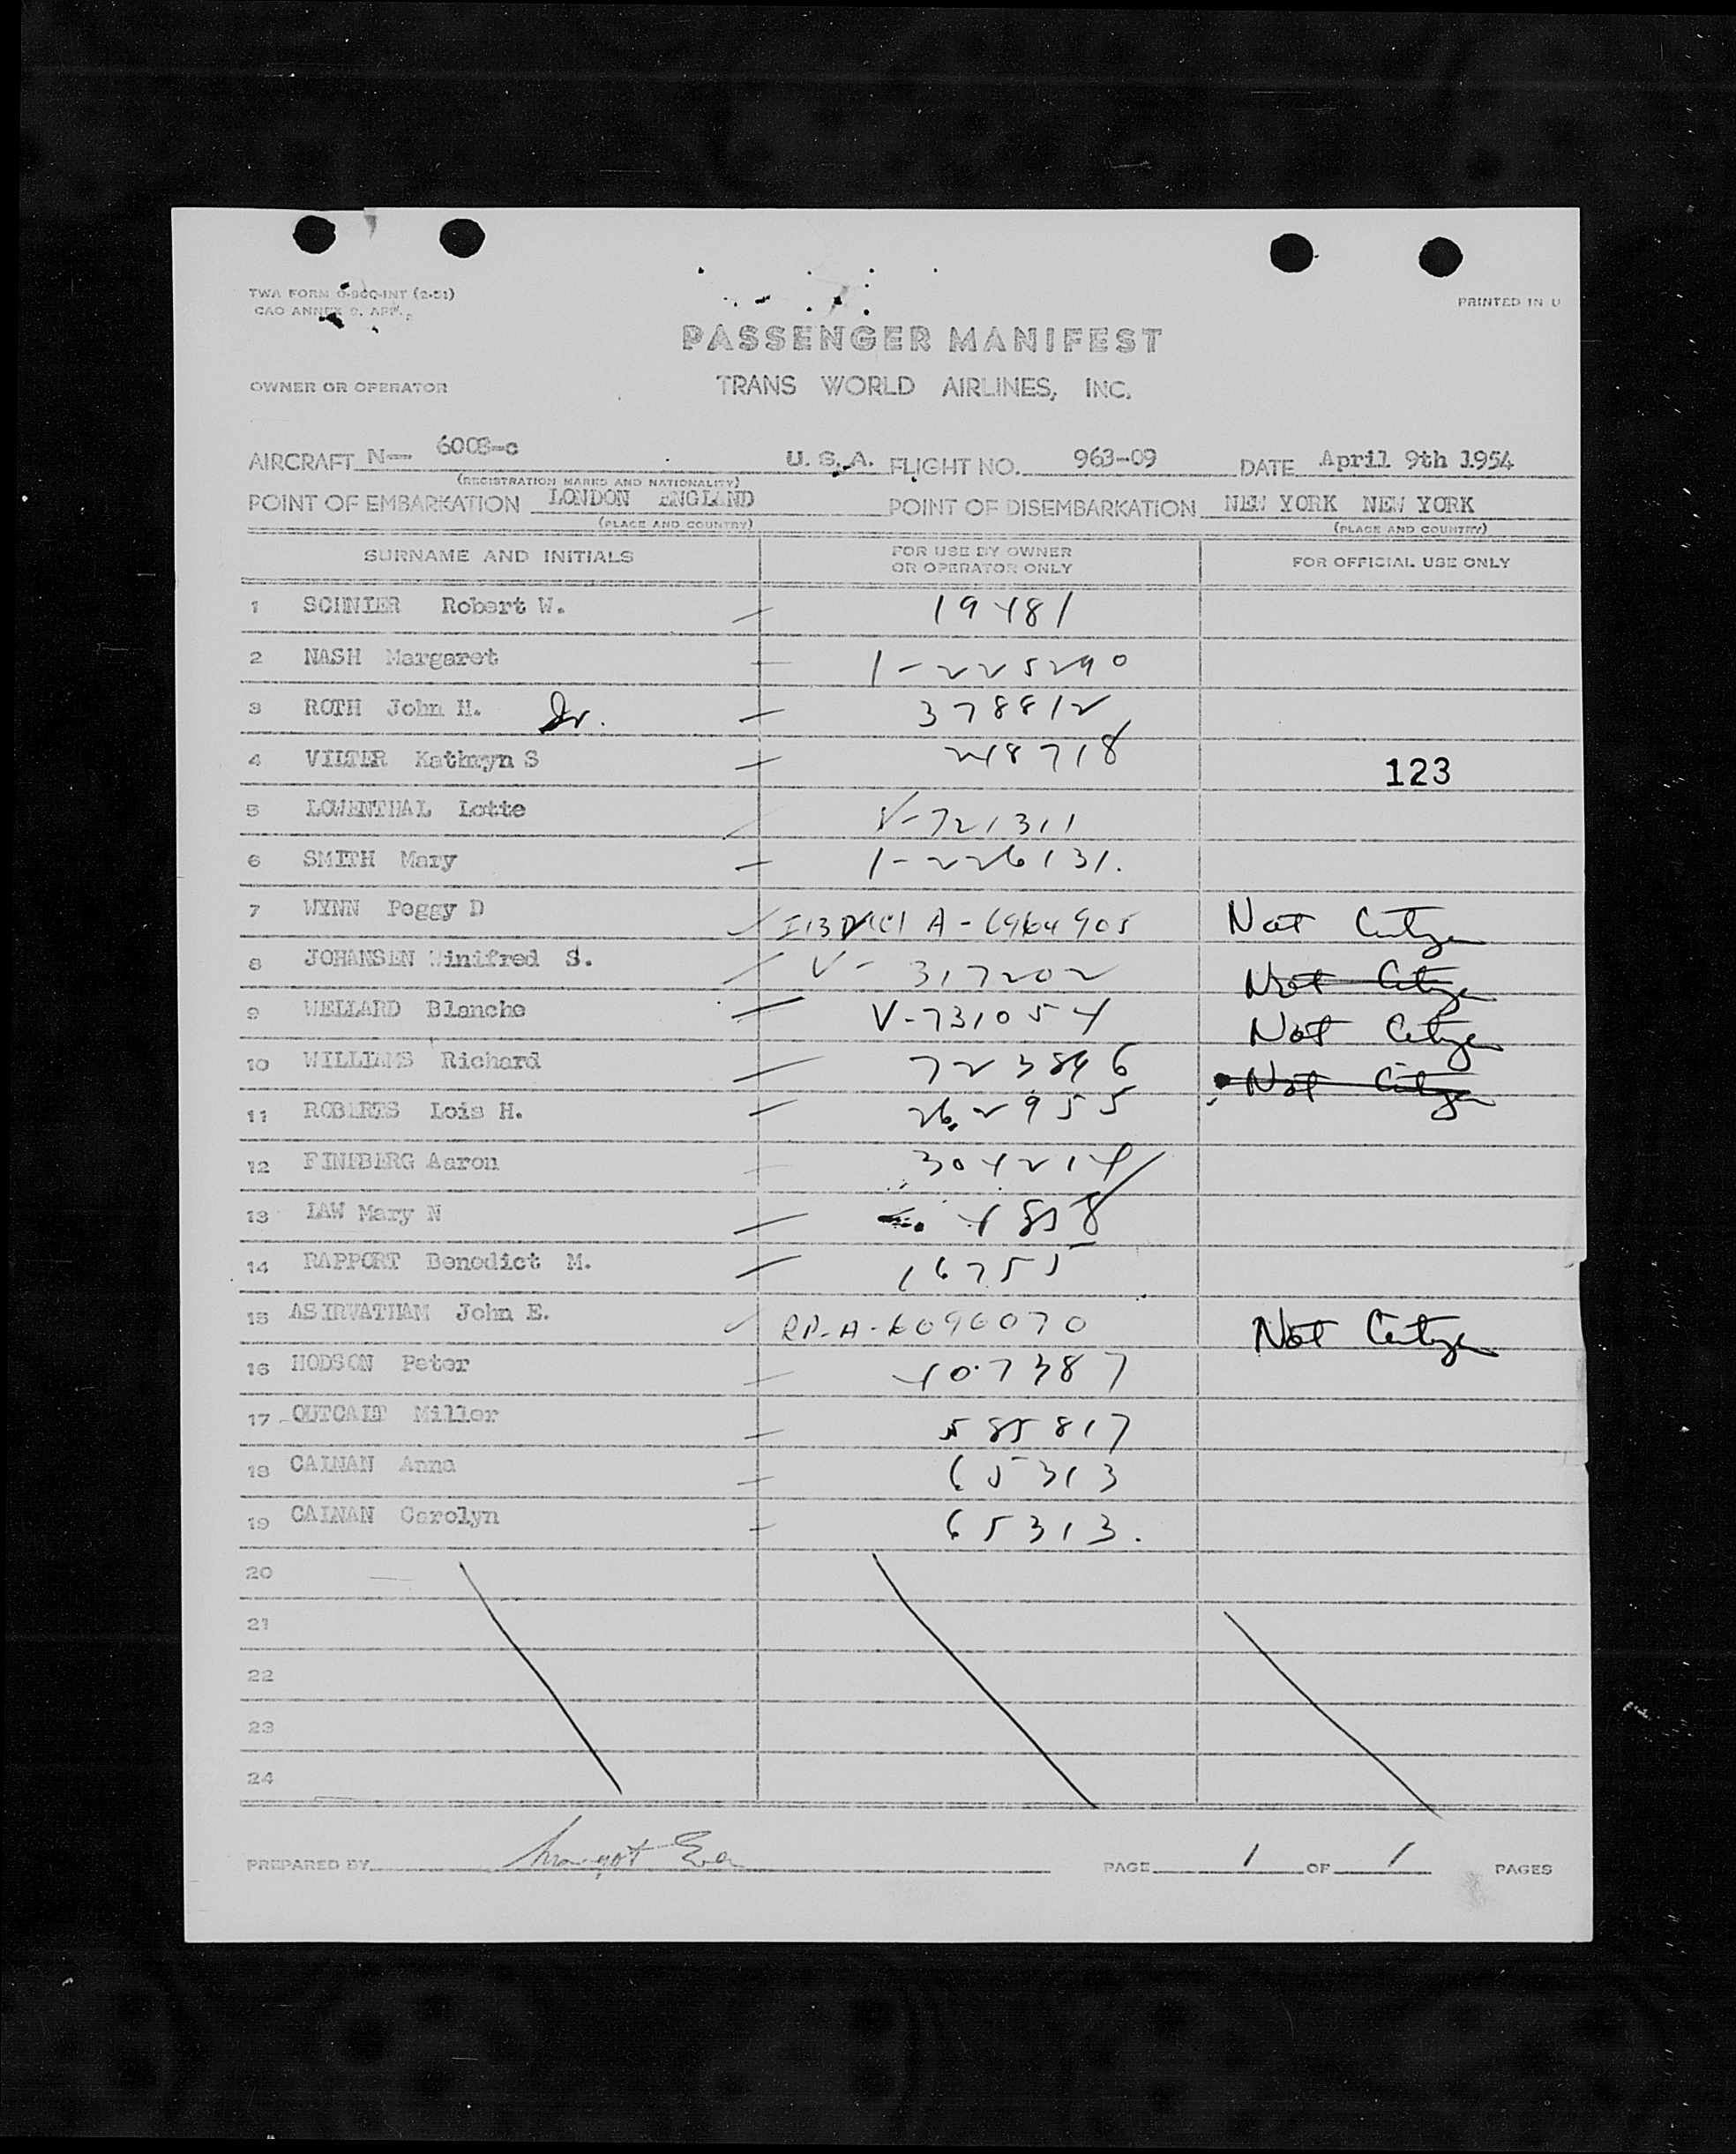 TWA FORM
PRINTED IN U
PASSENGER MANIFEST
OWNER OR OPERATOR TRANS WORLD AIRLINES, INC.
AIRCRAFT N— 6008-c U. S. A. FLIGHT NO. 963-09 DATE April 9th 1954
(REGISTRATION MARKS AND NATIONALITY)
POINT OF EMBARKATION LONDON ENGLAND POINT OF DISEMBARKATION NEW YORK NEW YORK
(PLACE AND COUNTRY) (PLACE AND COUNTRY)
SURNAME AND INITIALS FOR USE BY OWNER OR OPERATOR ONLY FOR OFFICIAL USE ONLY
1 SCHNIER Robert W. 19481
2 NASH Margaret 1-225290
3 ROTH John H. Jr. 378812
4 VILTER Kathryn S 248718 123
5 LOWENTHAL Lotte V-721311
6 SMITH Mary 1-226131.
7 WYNN Peggy D Not Citizen
8 JOHANSEN Winifred S. V- 317202 Not Citizen
9 WELLARD Blanche V-731054 Not Citizen
10 WILLIAMS Richard 723896 Not Citizen
11 ROBERTS Lois H. 262955
12 FINEBERG Aaron 304214
13 LAW Mary N 4858
14 RAPPORT Benedict M. 16755
15 ASIRVATHAM John E. RP-A-6090070 Not Citizen
16 HODSON Peter 407387
17 OUTCALT Miller 585817
18 CAINAN Anna 65313
19 CAINAN Carolyn 65313.
20
21
22
23
24
PREPARED BY Margot PAGE 1 OF 1 PAGES